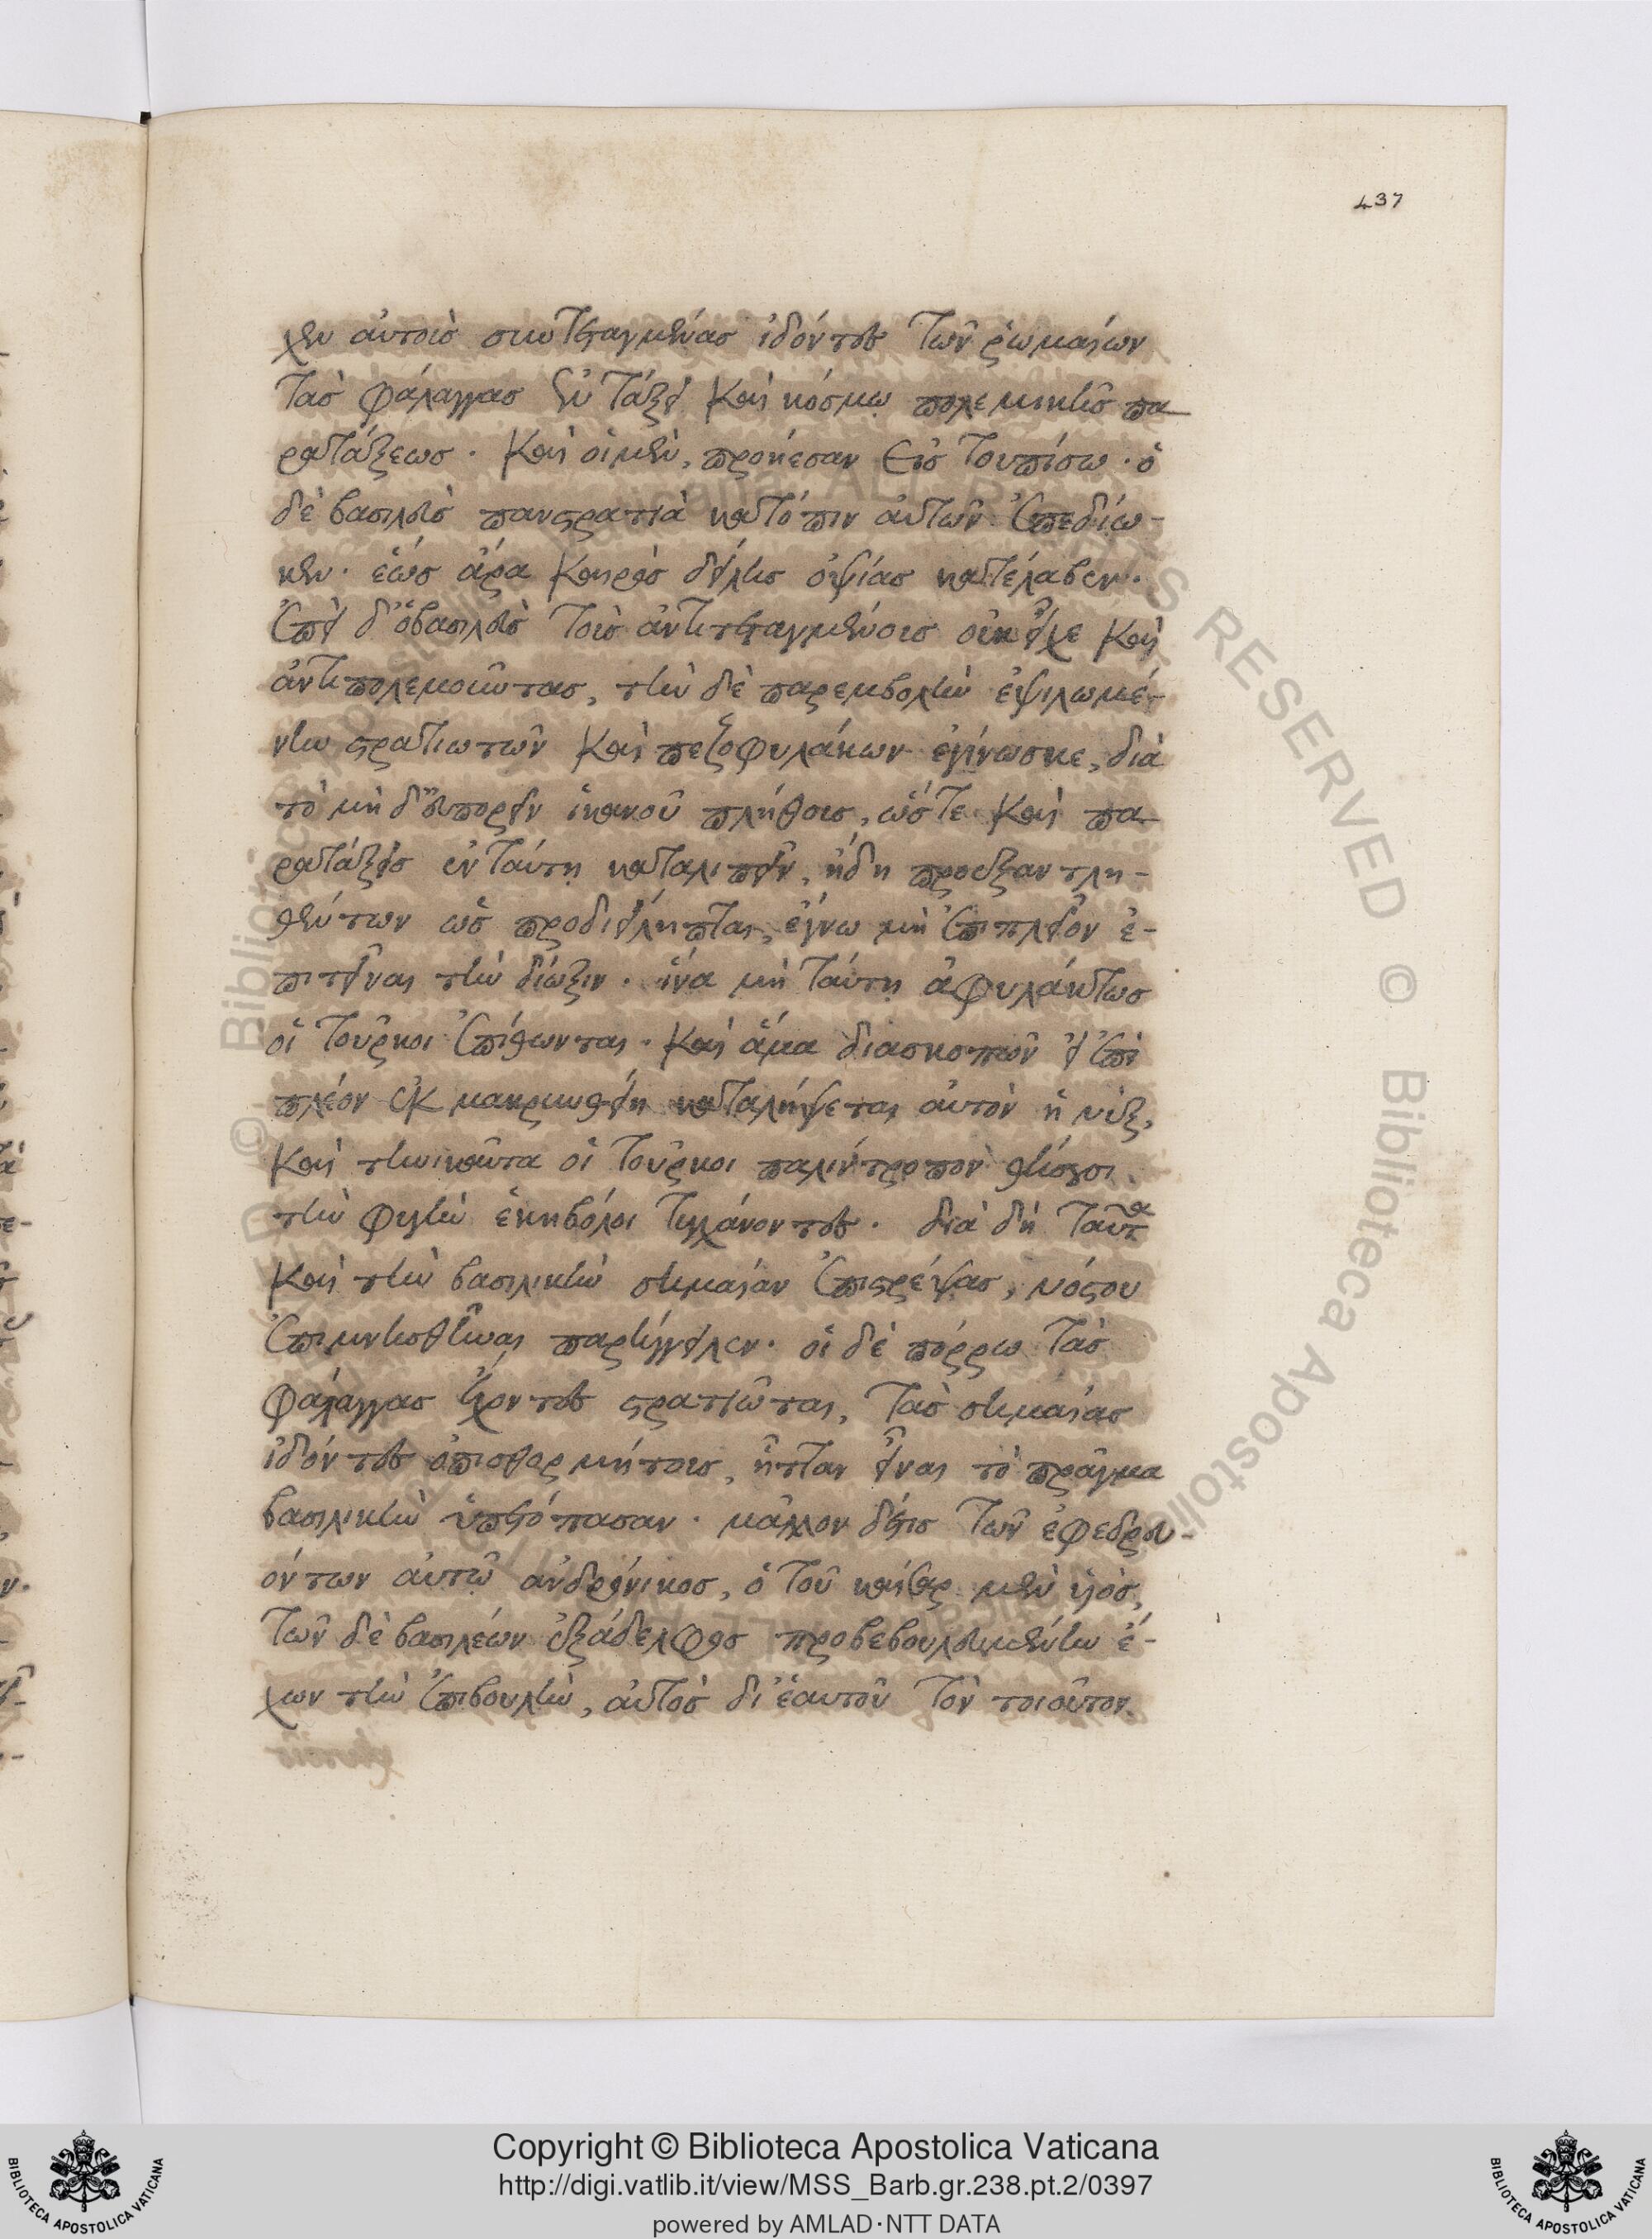 437
χεν αὐτοῖς συντεταγμένας ἰδόντες τῶν ῥωμαίων
τὰς φάλαγγας ἐν τάξει καὶ κόσμω πολεμικῆς πα
ρατάξεως. καὶ οἱ μὲν, προήεσαν εἰς τουπίσω. ὁ
δὲ βασιλεὺς πανστρατιὰ κατόπιν αὐτῶν ἐπεδίω-
κεν. ἕως ἄρα καιρὸς δείλης ὀψίας κατέλαβεν.
ἐπεὶ δ' ὁ βασιλεὺς τοὺς ἀντιτεταγμένους οὐκ εἶχε καὶ
ἀντιπολεμοῦντας, τὴν δὲ παρεμβολὴν ἐψιλωμέ-
νην στρατιωτῶν καὶ πεζοφυλάκων ἐγίνωσκε, διὰ
τὸ μὴ δ' εὐπορεῖν ἱκανοῦ πλήθους, ὥστε καὶ πα
ρατάξεις ἐν ταύτη καταλιπεῖν, ἤδη προεξαντλη-
θέντων ὡς προδιείληπται, ἔγνω μὴ ἐπιπλεῖον ἐ-
πιτεῖναι τὴν δίωξιν. ἵνα μὴ ταύτη ἀφυλάκτως
οἱ τοῦρκοι ἐπίθωνται. καὶ ἅμα διασκοπῶν εἰ ἐπὶ
πλέον ἐκμακρυνθείη καταλήψεται αὐτὸν ἡ νὺξ,
καὶ τηνικαῦτα οἱ τοῦρκοι παλίντροπον θήσουσι
τὴν φυγὴν ἑκηβόλοι τυγχάνοντες. διὰ δὴ ταῦτα
καὶ τὴν βασιλικὴν σημαίαν ἐπιστρέψας, νόστου
ἐπιμνησθῆναι παρήγγειλεν. οἱ δὲ πόρρω τὰς
φάλαγγας ἔχοντες στρατιῶται, τὰς σημαίας
ἰδόντες ὀπισθορμήτους, ἧτταν εἶναι τὸ πρᾶγμα
βασιλικὴν ὑπετόπασαν. μᾶλλον δέ τις τῶν ἐφεδρευ-
όντων αὐτῶ ἀνδρόνικος, ὁ τοῦ καίσαρ μὲν υἱὸς,
τῶν δὲ βασιλέων ἐξάδελφος προβεβουλευμένην ἔ-
χων τὴν ἐπιβουλὴν, αὐτὸς δι' ἑαυτοῦ τὸν τοιοῦτον
Copyright © Biblioteca Apostolica Vaticana
http://digi.vatlib.it/view/MSS_Barb.gr.238.pt.2/0397
powered by AMLAD·NTT DATA